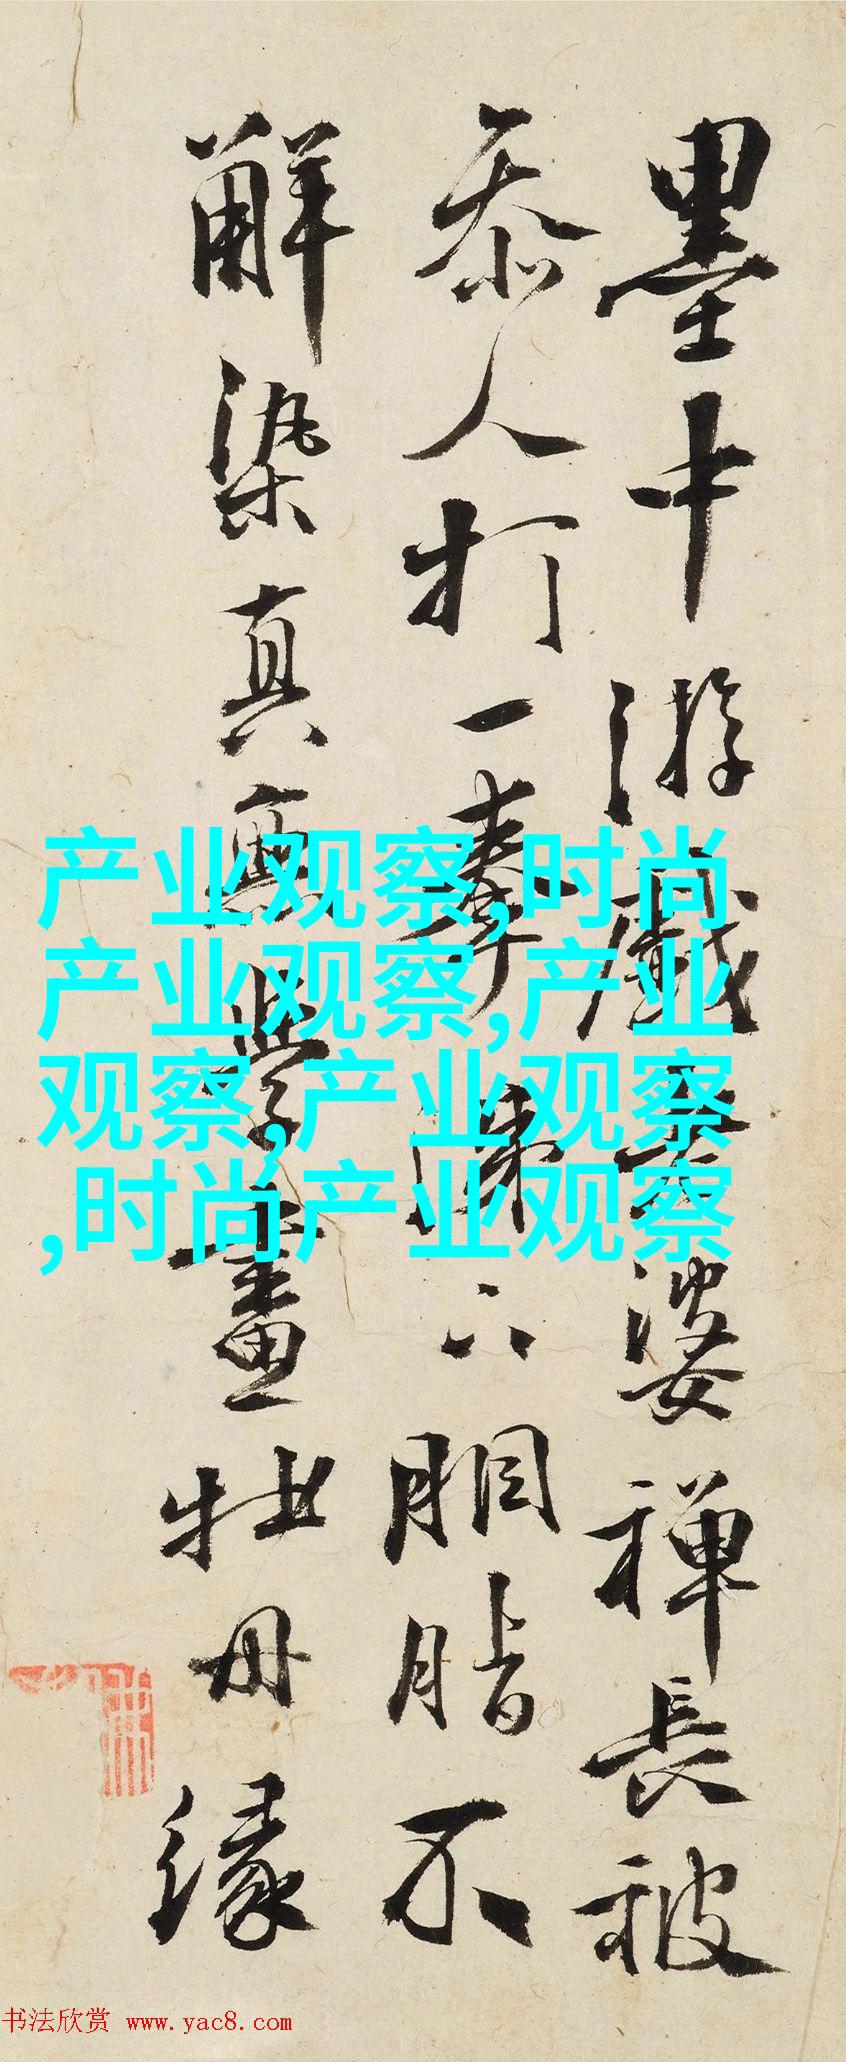 墨中游戲老婆禪長被
忝人打一拳涕下胭脂不
解染真無學畫牡丹緣
产业观察,时尚
产业观察,产业
观察,产业观察
,时尚产业观察
书法欣赏 www.yac8.com